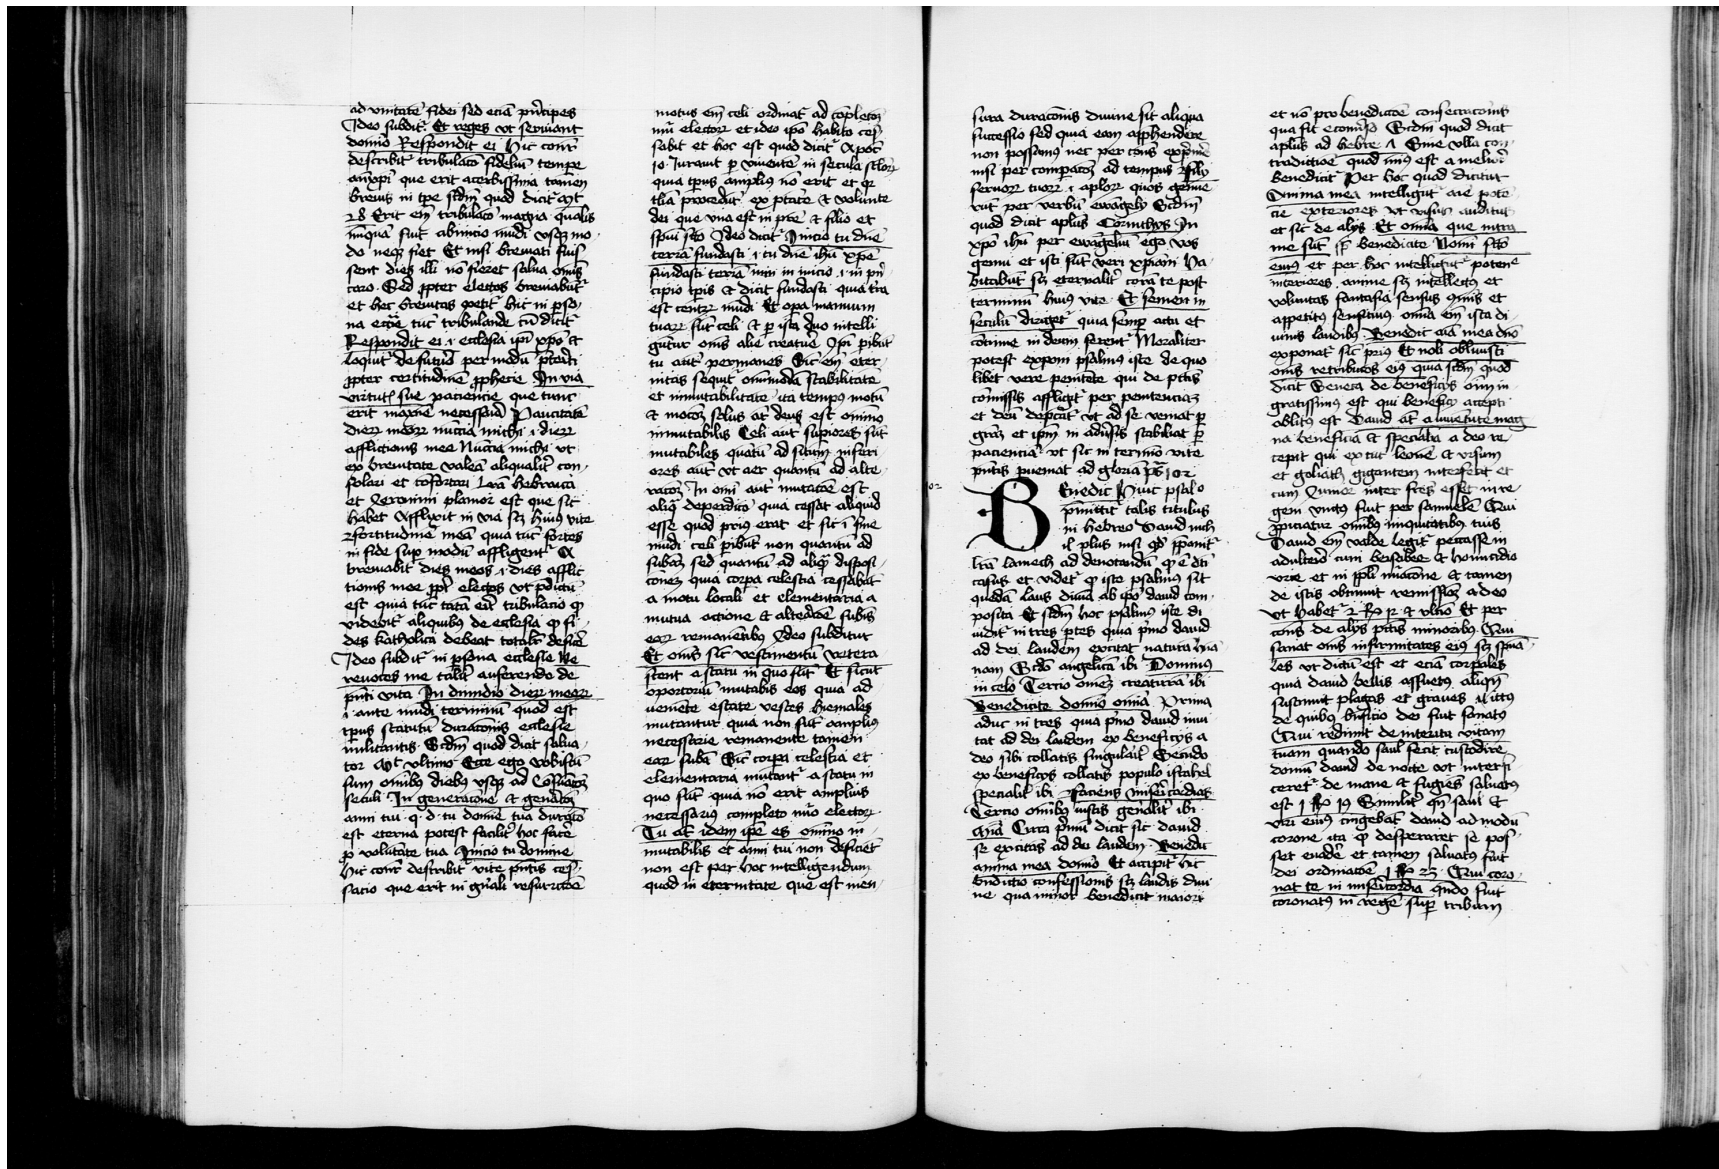 ad vnitatē fidei sed eciā prīcipes
Ideo subditᷣ Et reges vt seruiant
domīo Respondit ei Hic contrᷣ
describitᷣ tribulatō fidelium tempe
anxpī que erit acerbissima tamen
breuis in tpe scdm quod dicitᷣ Mt
28 Erit eīm tribulatō magna qualis
nūquā fuit abinicio mūdi vsqꝫ mo
do neqꝫ fiet Et nisi breuiati fuis
sent dies illi nō fieret salua omīs
caro Sed ꝓpter electos breuiabūtᷣ
et hec breuitas petitᷣ hic in pso
na eccīe tūc tribulande cū dicitᷣ
Respondit ei .i. ecclesia ipi xpō &
loquitᷣ de futurō per modū ꝓteriti
ꝓpter certitudinē ꝓphecie In via
virtutꝭ sue paciencie que tunc
erit maxīe necessaria Paucitatē
dierꝝ meorꝝ nūcia michi .i. dierꝝ
afflictionis mee Nūcia michi vt
ex breuitate valeā aliqualitᷣ con
solari et cōfortari Lrā hebraica
et Ieronimi planior est que sic
habet Afflixit in via scꝫ huius vite
fortitudinē meā quia tūc fortes
in fide sup modū affligentᷣ Et
breuiabit dies meos .i. dies afflic
tionis mee ꝓpt electos vt p̄dictū
est quia tūc tāta erit tribulacio ꝙ
videbitᷣ aliquibꝰ de ecclesia ꝙ fi
des katholica debeat totalitᷣ deficē
Ideo subditᷣ in psona ecclesie Ne
reuoces me talitᷣ auferendo de
p̄nti vita In dimidio dierꝝ meorꝝ
.i. ante mūdi terminū quod est
tpus statutū duracōnis ecclesie
militantis Scdm quod dicit salua
tor Mt vltimo Ecce ego vobiscū
sum omībꝰ diebꝰ vsqꝫ ad
seculi In generacōne & genᷣatōꝫ
anni tui .q.d. tu domīe tua duratō
est eterna potest facilitᷣ hoc facē
ꝓ volūtate tua Inicio tu domine
Hic contrᷣ describitᷣ vite p̄ntis ces
sacio que erit in gn̄ali resurrctōe
motus eīm celi ordinatᷣ ad cōpletōꝫ
nūi electorꝝ et ideo ipō habito ces
sabit et hoc est quod dicitᷣ Apoc
10 Iurauit ꝑ viuentē in secula sclorꝝ
quia tpus ampliꝰ nō erit et qꝛ
illa procedūt ex ptate & volūnte
dei que vna est in prē & filio et
spūi scō Ideo dicitᷣ Inicio tu dn̄e
terrā fundasti .i. tu dn̄e ihū xpē
fundasti terrā in inicio .i. in prī
cipio tpis & dicit fundasti quia trā
est centrꝝ mūdi Et opa manuum
tuarꝝ sūt celi & ꝑ ista duo intelli
gūtur omīs alie creature Ipi pibūt
tu aut permanes Sic eīm eter
nitas sequitᷣ omīmodā stabilitatē
et inmutabilitatē ita tempꝰ motū
& motōꝫ solus at deus est omīno
inmutabilis Celi aut supiores sūt
mutabiles quātū ad situm inferi
ores aut vt aer quantū ad alte
racōꝫ In omī aut mutacōe est
aliqᷓ deperditō quia cessat aliquid
esse quod prius erat et sic i fine
mūdi celi pibūt non quantū ad
subāꝫ sed quantū ad aliqᷓ disposi
cōnes quia corpa celestia cessabūt
a motu locali et elementaria a
mutua actione & alteracōe subīs
earꝝ remanentibꝰ Ideo subditur
Et omīs sicᷣ vestimentū vetera
scent a statu in quo sūt Et sicut
oportoriū mutabis eos quia ad
veniēte estate vestes hiemales
mutantur quia non sūt ampliꝰ
necessarie remanente tamen
earꝝ subā Sic corpa celestia et
elementaria mutantᷣ a statu in
quo sūt quia nō erit amplius
necessariꝰ completo nūo electorꝝ
Tu at idem ipē es omīno in
mutabilis et anni tui non deficiēt
non est per hoc intelligendum
quod in eternitate que est men
sura duracōnis diuine sit aliqua
successio sed quia eam apphendere
non possumꝰ nec per cōns exprimē
nisi per comparatōꝫ ad tempus filij
seruorꝝ tuorꝝ .i. aplorꝝ quos genue
rūt per verbū ewāgelij Scdm
quod dicit aplus Corinthijs In
xpō ihū per ewāgeliū ego vos
genui et isti sūt veri xpiani Ha
bitabūt scꝫ eternalitᷣ corā te post
terminū huiꝰ vite Et semen in
seculū dirigetᷣ quia semp actu et
cōtinue in deum ferentᷣ Moraliter
potest exponi psalmus iste de quo
libet vere penitēte qui de pctis
cōmissis affligitᷣ per penitenciaꝫ
et deū deprecatᷣ vt ad se veniat ꝑ
graꝫ et ipm in adūsis stabiliat ꝑ
pacienciā vt sic in termīo vite
p̄ntis pueniat ad gloriā ps 102
102
Benedic Huic psalmo
p̄mittitᷣ talis titulus
in hebreo Dauid nich
il plus nisi qꝺ p̄ponitᷣ
lrā lamech ad denotandū ꝙ ē dti
casus et videtᷣ ꝙ iste psalmus sit
quedā laus diuīa ab ipō dauid com
posita Et scdm hoc psalmus iste di
uiditᷣ in tres ptes quia p̄mo dauid
ad dei laudem excitat naturā hūa
nam Scdo angelicā ibi Dominus
in celo Tercio omēꝫ creaturā ibi
Benedicite domīo omīa Prima
adhuc in tres quia p̄mo dauid inui
tat ad dei laudem ex beneficijs a
deo sibi collatis singularitᷣ Secundo
ex beneficijs collatis populo israhel
specialitᷣ ibi Faciens misericordias
Tercio omībꝰ iustis gen̄alitᷣ ibi
Circa p̄mū dicit sic dauid
se excitās ad dei laudem Benedic
anima mea domīo Et accipitᷣ hic
bn̄dictio confessionis scꝫ laudis diui
ne quia minor benedicit maiori
et nō pro benedictōe consecracōnis
qua fit ecōnuerso Scdm quod dicit
aplus ad hebre Sine vlla con
tradictiōe quod minꝰ est a meliori
benedicitᷣ Per hoc quod dicitur
Anima mea intelligūtᷣ aīe potē
cie exteriores vt visus auditus
et sic de alijs Et omīa que intra
me sūt benedicite Nomī scō
eius et per hoc intelligūtᷣ potencᵉ
interiores anime scꝫ intellectꝰ et
voluntas fantasia sensus cōmunis et
appetitꝰ sensitiuꝰ omīa eīm ista di
uinis laudibꝰ Benedic aīa mea dn̄o
exponatᷣ sicᷣ priꝰ Et noli obliuisci
omīs retribucōes eiꝰ quia scdm quod
dicit Seneca de beneficijs omīm in
gratissimꝰ est qui beneficij accepti
oblitꝰ est Dauid at a iuuētute mag
na beneficia & specialia a deo re
cepit qui ex tūc leonē & vrsum
et goliath gigantem interfecit et
cum iunior inter frēs esset in re
gem vnctꝰ fuit per samuelē Qui
ꝓpiciatur omībꝰ iniquitatibꝰ tuis
Dauid eīm valde legitᷣ peccasse in
adulterio cum bersabee & homicidio
vrie et in ppli nūacōne & tamen
de istis obtinuit remissionꝫ a deo
vt habetᷣ 2 Rᷓ 12 & vltīo Et per
cōns de alijs pctis minoribꝰ Qui
sanat omīs infirmitates tuas scꝫ spūa
les vt dictū est et eciā corpales
quia dauid bellis assuetꝰ aliqn̄
sustinuit plagas et graues ictus
de quibꝰ bn̄ficio dei fuit sanatus
Qui redimit de interitu vitam
tuam quando saul fecit custodire
domū dauid de nocte vt interfi
ceretᷣ de mane & fugiēs saluatus
est 1 Rᷓ 19 Similitᷣ qn̄ saul &
viri eius cingebāt dauid ad modū
corone ita ꝙ desperaret se pos
set euadē et tamen saluatꝰ fuit
dei ordinacōe 1 Rᷓ 23 Qui coro
nat te in misericordia qn̄do fuit
coronatꝰ in regē sup tribum